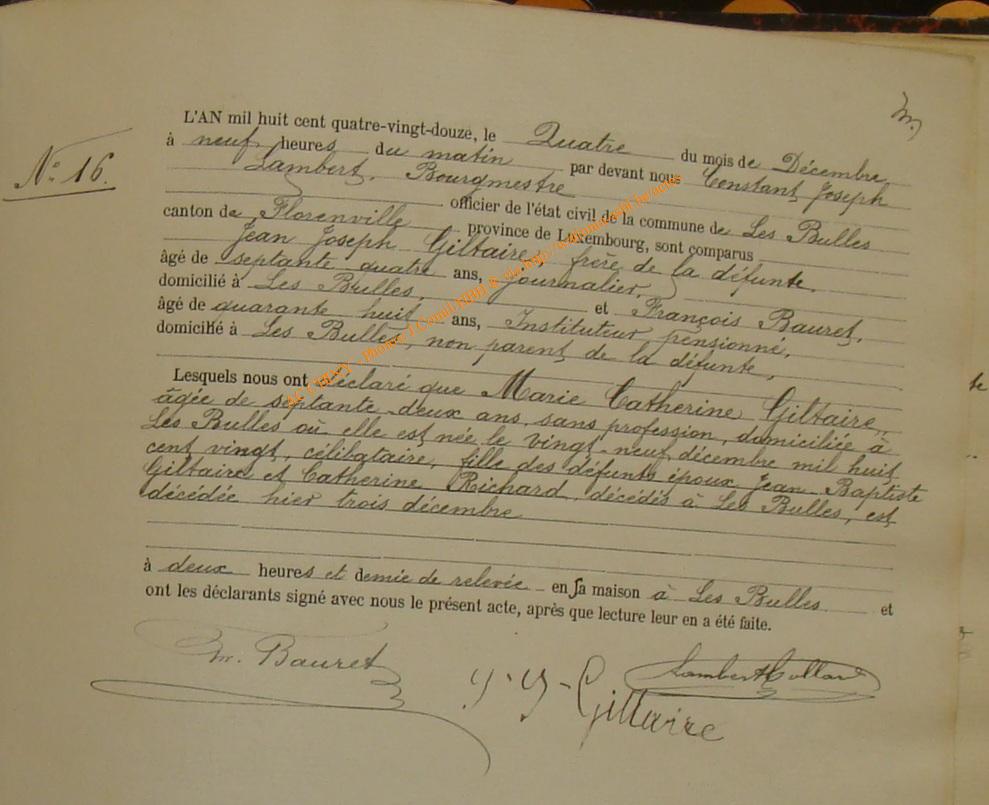 m.
L'AN mil huit cent quatre-vingt-douze, le Quatre du mois de Décembre
N° 16.
à neuf heures du matin par devant nous Constant Joseph
Lambert, Bourgmestre officier de l'état civil de la commune de Les Bulles
canton de Florenville province de Luxembourg, sont comparus
Jean Joseph Giltaire, frère de la défunte.
âgé de septante quatre ans, Journalier,
domicilié à Les Bulles, et François Bauret,
âgé de quarante huit ans, Instituteur pensionné,
domicilié à Les Bulles, non parent de la défunte,
Lesquels nous ont déclaré que Marie Catherine Giltaire,
âgée de septante-deux ans, sans profession, domiciliée à
Les Bulles où elle est née le vingt-neuf décembre mil huit
cent vingt, célibataire, fille des défunts époux Jean Baptiste
Giltaire et Catherine Richard, décédés à Les Bulles, est
décédée hier trois décembre
à deux heures et demie de relevée en sa maison à Les Bulles et
ont les déclarants signé avec nous le présent acte, après que lecture leur en a été faite.
Bauret J-J-Giltaire Lambert